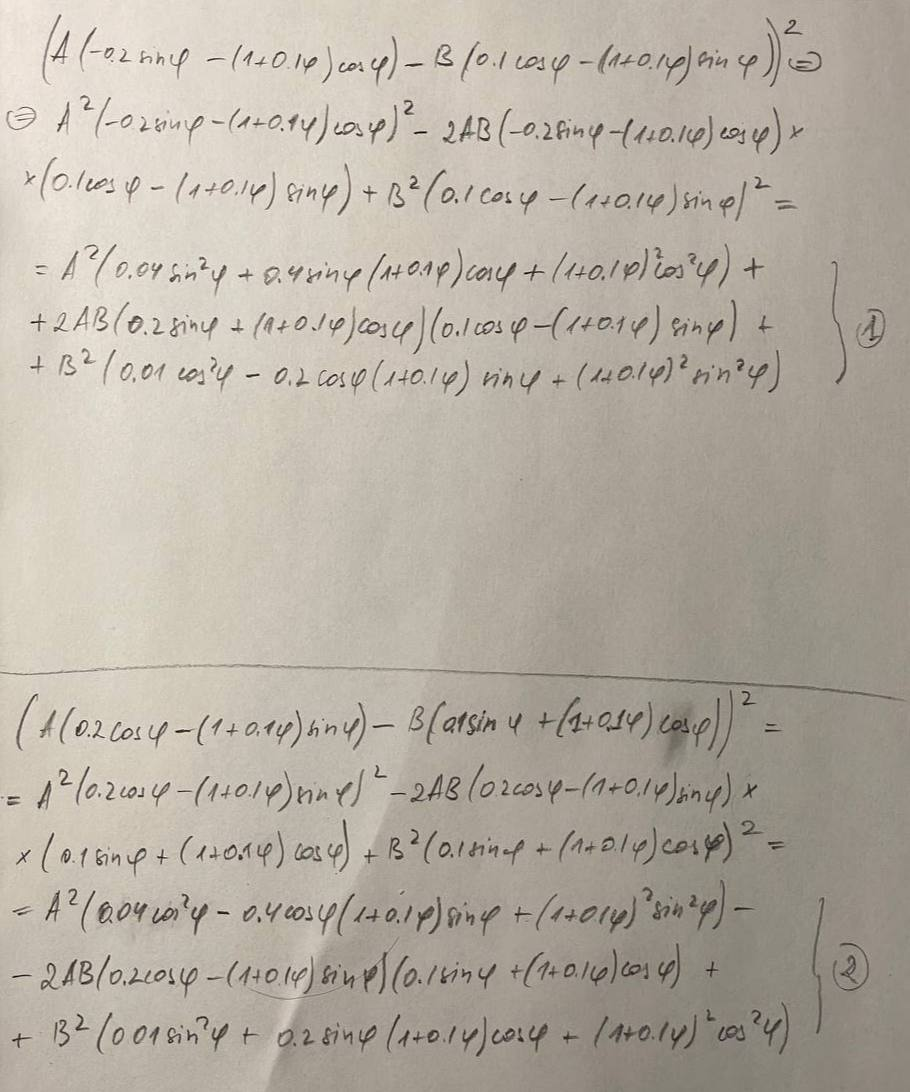 (A(-0.2 sinφ - (1+0.1φ) cosφ) - B(0.1 cosφ - (1+0.1φ) sin φ))² ⊜
⊜ A²(-0.2sinφ - (1+0.1φ)cosφ)² - 2AB(-0.2sinφ - (1+0.1φ)cosφ) ×
×(0.1cosφ - (1+0.1φ) sinφ) + B²(0.1cosφ - (1+0.1φ)sinφ)² =
= A²(0.04 sin²φ + 0.4sinφ(1+0.1φ)cosφ + (1+0.1φ)²cos²φ) +
+ 2AB(0.2sinφ + (1+0.1φ)cosφ)(0.1cosφ - (1+0.1φ) sinφ) +
+ B²(0.01 cos²φ - 0.2 cosφ(1+0.1φ) sinφ + (1+0.1φ)² sin²φ)
①
(A(0.2cosφ - (1+0.1φ)sinφ) - B(0.1sinφ + (1+0.1φ)cosφ))² =
= A²(0.2cosφ - (1+0.1φ)sinφ)² - 2AB(0.2cosφ - (1+0.1φ)sinφ) ×
×(0.1sinφ + (1+0.1φ)cosφ) + B²(0.1sinφ + (1+0.1φ)cosφ)² =
= A²(0.04cos²φ - 0.4cosφ(1+0.1φ)sinφ + (1+0.1φ)²sin²φ) -
- 2AB(0.2cosφ - (1+0.1φ)sinφ)(0.1sinφ + (1+0.1φ)cosφ) +
+ B²(0.01sin²φ + 0.2sinφ(1+0.1φ)cosφ + (1+0.1φ)²cos²φ)
②